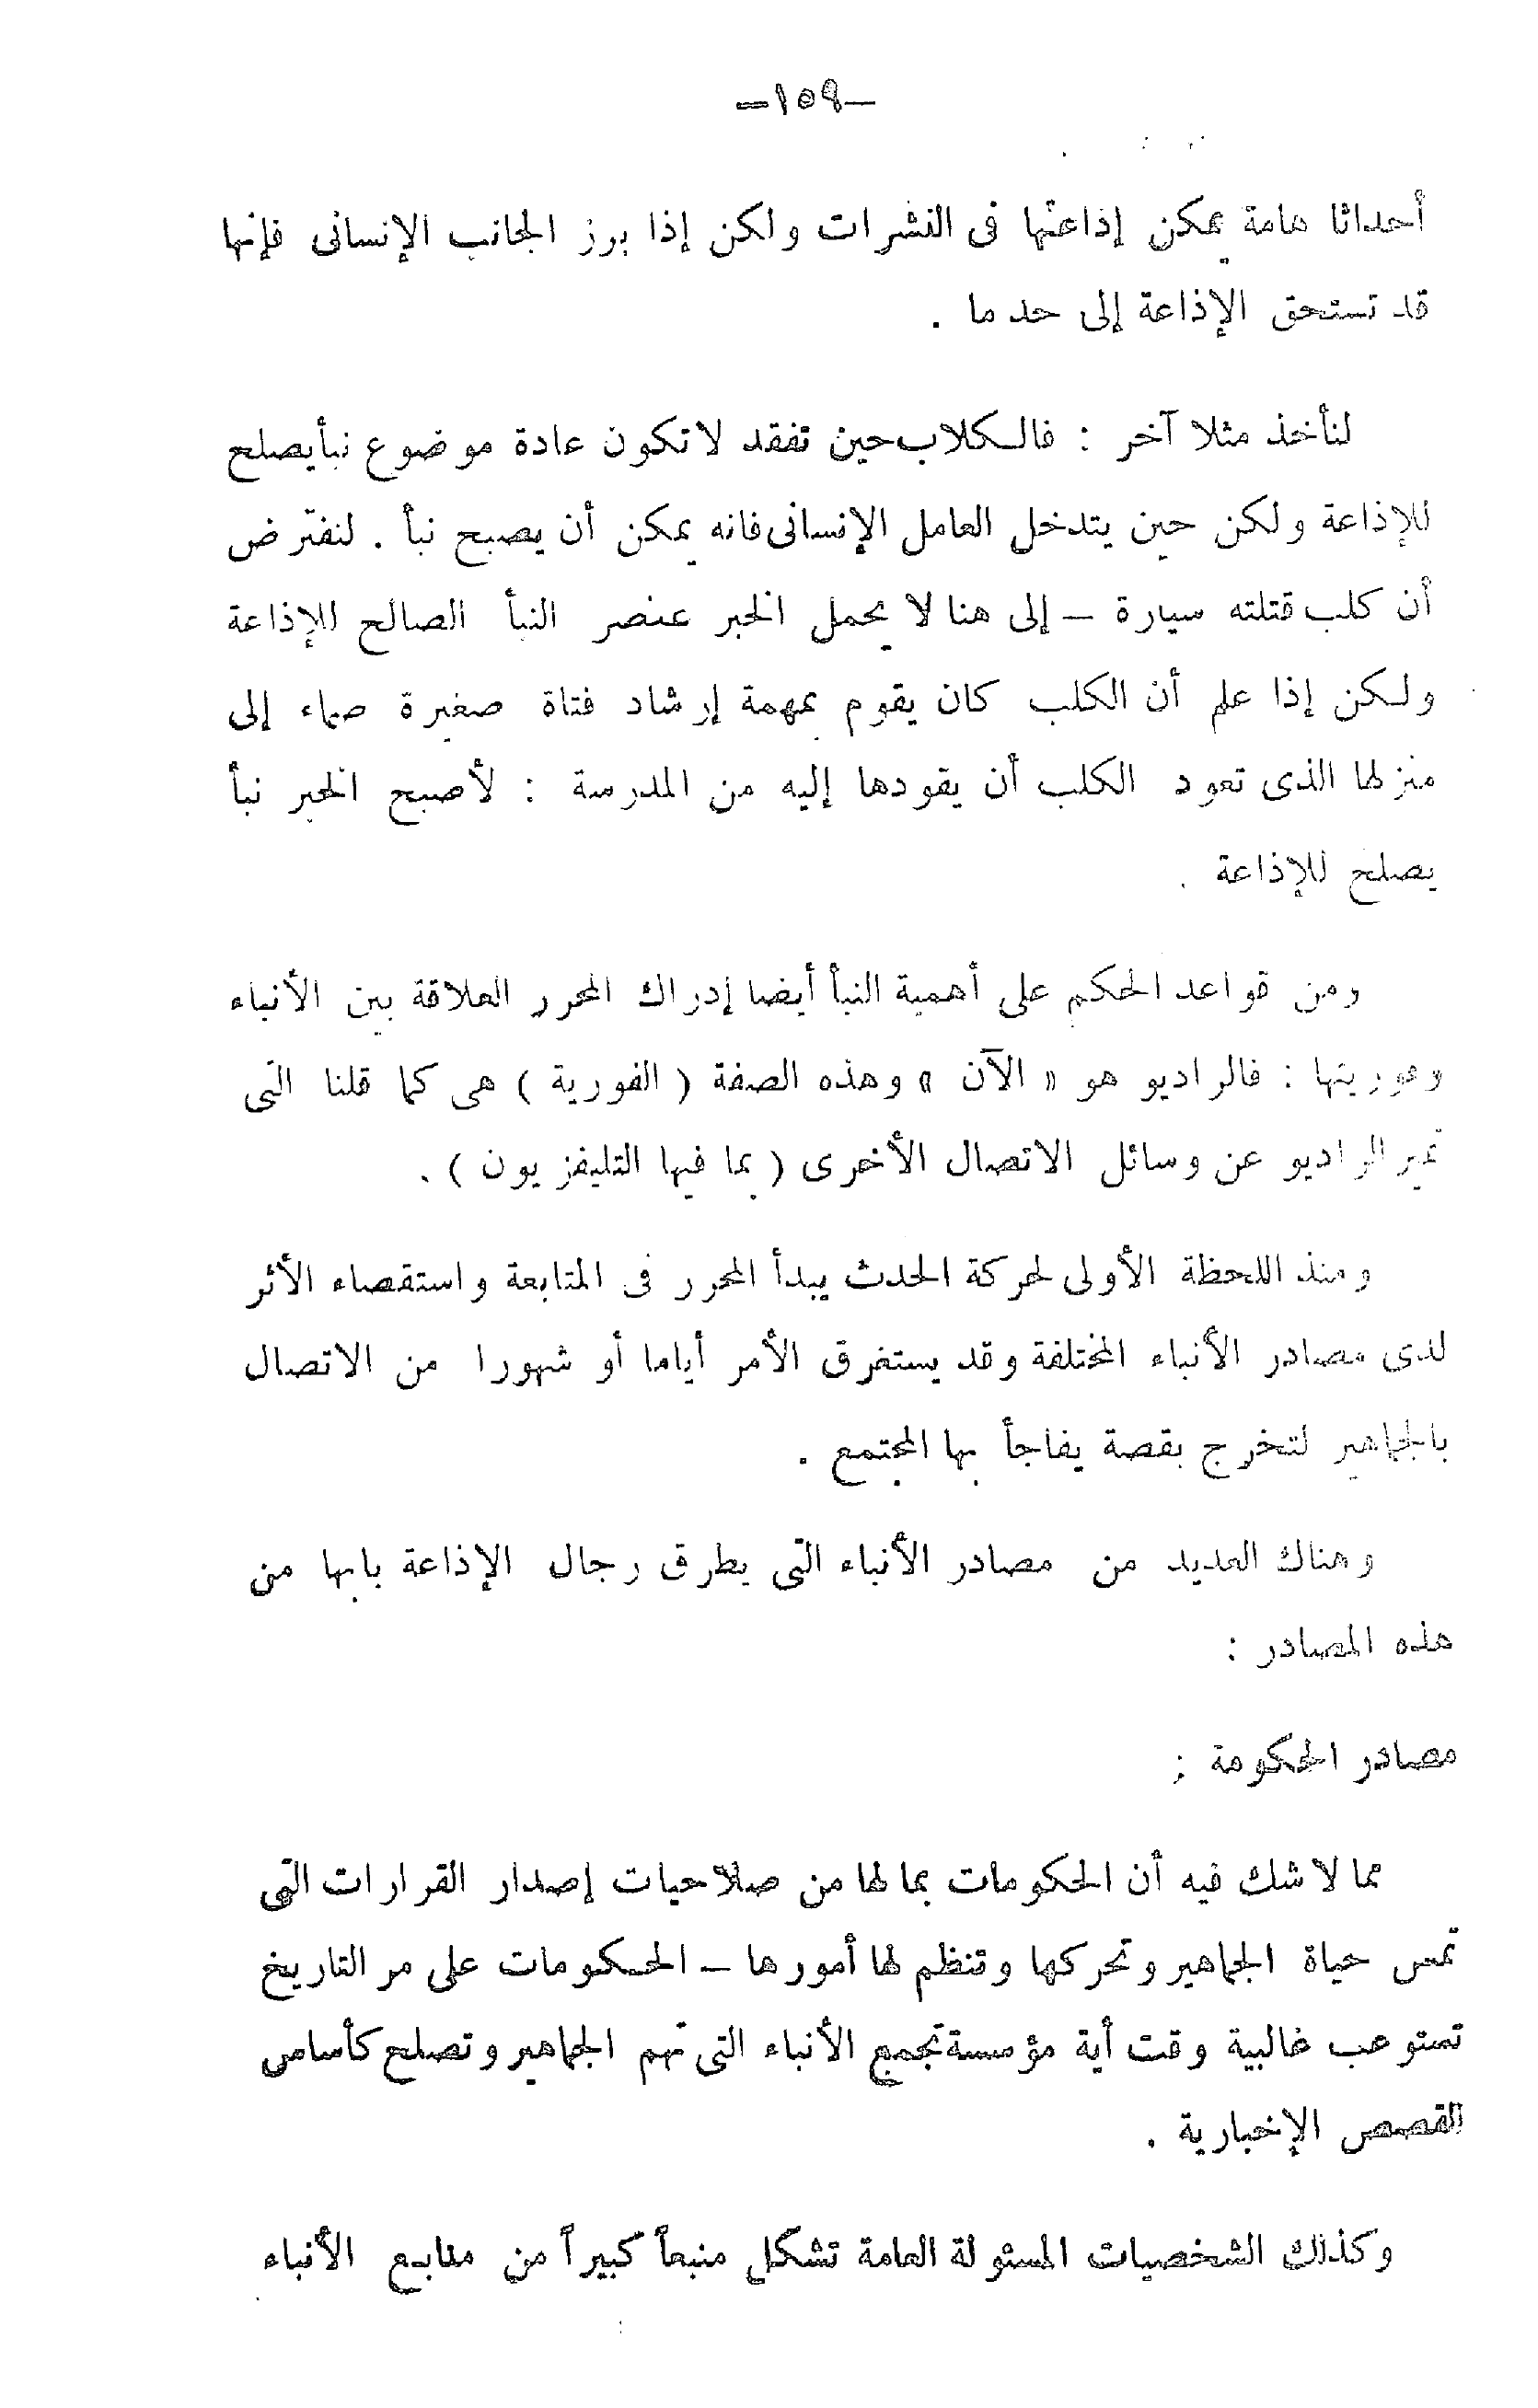 —١٥٩—
أحداثا هامة يمكن إذاعتها فى النشرات ولكن إذا برز الجانب الإنسانى فإنها
قد تستحق الإذاعة إلى حد ما .
لنأخذ مثلا آخر : فالكلاب حين تفقد لا تكون عادة موضوع نبأ يصلح
للإذاعة ولكن حين يتدخل العامل الإنسانى فانه يمكن أن يصبح نبأ . لنفترض
أن كلب قتلته سيارة – إلى هنا لا يحمل الخبر عنصر النبأ الصالح للإذاعة
ولكن إذا علم أن الكلب كان يقوم بمهمة إرشاد فتاة صغيرة صماء إلى
منزلها الذى تعود الكلب أن يقودها إليه من المدرسة : لأصبح الخبر نبأ
يصلح للإذاعة .
ومن قواعد الحكم على أهمية النبأ أيضا إدراك المحرر العلاقة بين الأنباء
وفوريتها : فالراديو هو « الآن » وهذه الصفة ( الفورية ) هى كما قلنا التى
تميز الراديو عن وسائل الاتصال الأخرى ( بما فيها التليفزيون ) .
ومنذ اللحظة الأولى لحركة الحدث يبدأ المحرر فى المتابعة واستقصاء الأثر
لدى مصادر الأنباء المختلفة وقد يستغرق الأمر أياما أو شهورا من الاتصال
بالجماهير لتخرج بقصة يفاجأ بها المجتمع .
وهناك العديد من مصادر الأنباء التى يطرق رجال الإذاعة بابها من
هذه المصادر :
مصادر الحكومة :
مما لا شك فيه أن الحكومات بما لها من صلاحيات إصدار القرارات التى
تمس حياة الجماهير وتحركها وتنظم لها أمورها – الحكومات على مر التاريخ
تستوعب غالبية وقت أية مؤسسة تجمع الأنباء التى تهم الجماهير وتصلح كأساس
القصص الإخبارية .
وكذلك الشخصيات المسئولة العامة تشكل منبعاً كبيراً من منابع الأنباء